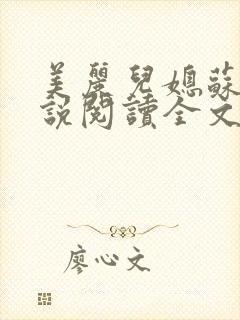 美麗兒媳蘇
說閱讀全文
廖心文